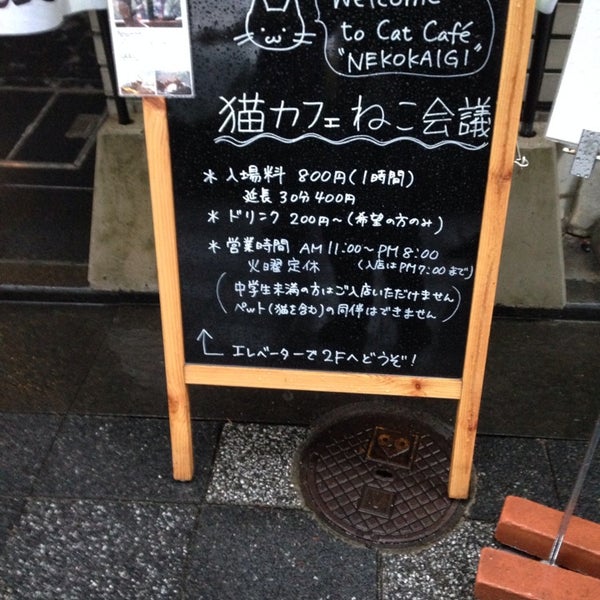 Welcome
to Cat Café
"NEKOKAIGI"
猫カフェ ねこ会議
* 入場料 800円(1時間)
延長 30分 400円
* ドリンク 200円〜(希望の方のみ)
* 営業時間 AM 11:00〜PM 8:00
火曜定休 (入店はPM7:00まで)
(中学生未満の方はご入店いただけません
ペット(猫を含む)の同伴はできません)
エレベーターで2Fへどうぞ!